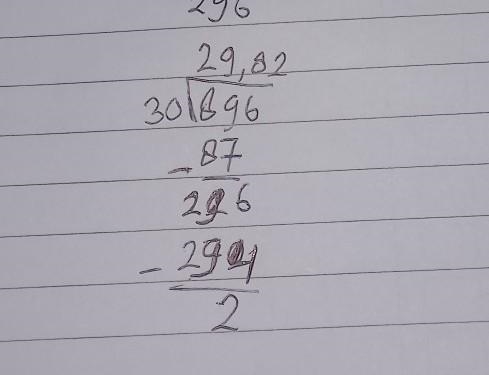 296
29,82
30√896
- 87
296
- 294
2